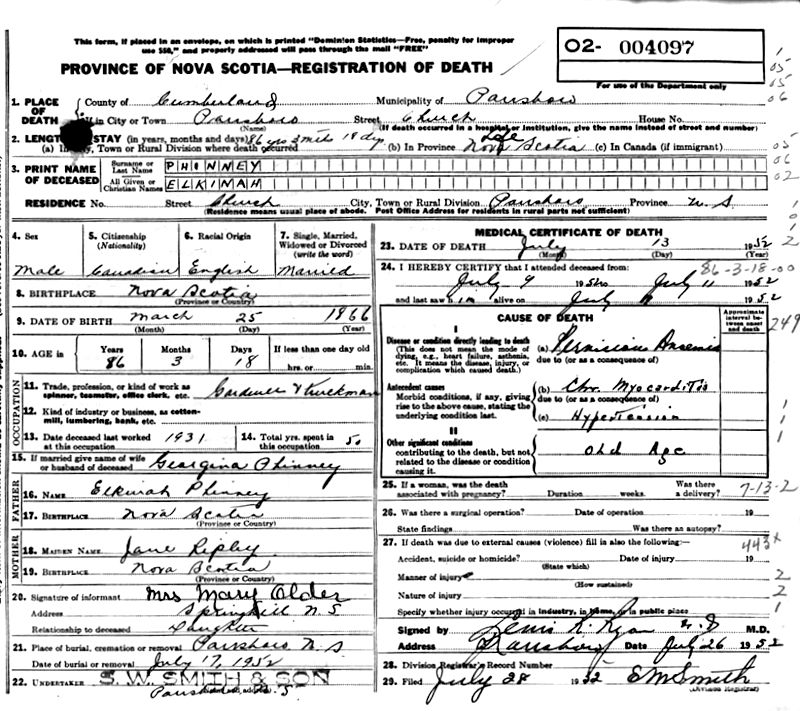 This form, if placed in an envelope, on which is printed "Dominion Statistics—Free, penalty for improper
use $50," and properly addressed will pass through the mail "FREE"
O2- 004097
For use of the Department only
PROVINCE OF NOVA SCOTIA—REGISTRATION OF DEATH
1. PLACE OF DEATH
County of Cumberland Municipality of Parrsboro
If in City or Town Parrsboro Street Church House No.
(Name) (If death occurred in a hospital or institution, give the name instead of street and number)
2. LENGTH STAY (in years, months and days) 86 yrs 3 mths 18 dys
(a) In City, Town or Rural Division where death occurred (b) In Province Life Nova Scotia (c) In Canada (if immigrant)
3. PRINT NAME OF DECEASED
Surname or Last Name PHINNEY
All Given or Christian Names ELKINAH
RESIDENCE No. Street Church City, Town or Rural Division Parrsboro Province N.S.
(Residence means usual place of abode. Post Office Address for residents in rural parts not sufficient)
4. Sex Male
5. Citizenship (Nationality) Canadian
6. Racial Origin English
7. Single, Married, Widowed or Divorced (write the word) Married
8. BIRTHPLACE Nova Scotia
(Province or Country)
9. DATE OF BIRTH March 25 1866
(Month) (Day) (Year)
10. AGE in Years 86 Months 3 Days 18 If less than one day old hrs. or min.
OCCUPATION
11. Trade, profession, or kind of work as spinner, teamster, office clerk, etc. Gardener & Truckman
12. Kind of industry or business, as cotton-mill, lumbering, bank, etc.
13. Date deceased last worked at this occupation 1931
14. Total yrs. spent in this occupation 50
15. If married give name of wife or husband of deceased Georgina Phinney
FATHER
16. NAME Elkinah Phinney
17. BIRTHPLACE Nova Scotia
(Province or Country)
MOTHER
18. MAIDEN NAME Jane Ripley
19. BIRTHPLACE Nova Scotia
(Province or Country)
20. Signature of informant Mrs Mary Older
Address Springhill N.S
Relationship to deceased Daughter
21. Place of burial, cremation or removal Parrsboro N.S
Date of burial or removal July 17, 1952
22. UNDERTAKER S. W. SMITH & SON
Parrsboro, N.S
MEDICAL CERTIFICATE OF DEATH
23. DATE OF DEATH July 13 1952
(Month) (Day) (Year)
24. I HEREBY CERTIFY that I attended deceased from: 86-3-18-00
July 9 1952 to July 11 1952
and last saw him alive on July 11 1952
CAUSE OF DEATH
Approximate interval between onset and death
249
I
Disease or condition directly leading to death
(This does not mean the mode of dying, e.g., heart failure, asthenia, etc. It means the disease, injury, or complication which caused death.)
(a) Pernicious Anaemia
due to (or as a consequence of)
Antecedent causes
Morbid conditions, if any, giving rise to the above cause, stating the underlying condition last.
(b) Chr. Myocarditis
due to (or as a consequence of)
(c) Hypertension
II
Other significant conditions
contributing to the death, but not related to the disease or condition causing it.
Old Age
25. If a woman, was the death associated with pregnancy? Duration weeks. Was there a delivery? 7-13-2
26. Was there a surgical operation? Date of operation 19
State findings Was there an autopsy?
27. If death was due to external causes (violence) fill in also the following:— 443x
Accident, suicide or homicide? Date of injury 19
(State which)
Manner of injury
(How sustained)
Nature of injury
Specify whether injury occurred in industry, in home, or in public place
Signed by Ryan M.D.
Address Parrsboro Date July 26 1952
28. Division Registrar's Record Number
29. Filed July 28 1952 E M Smith
(Division Registrar)